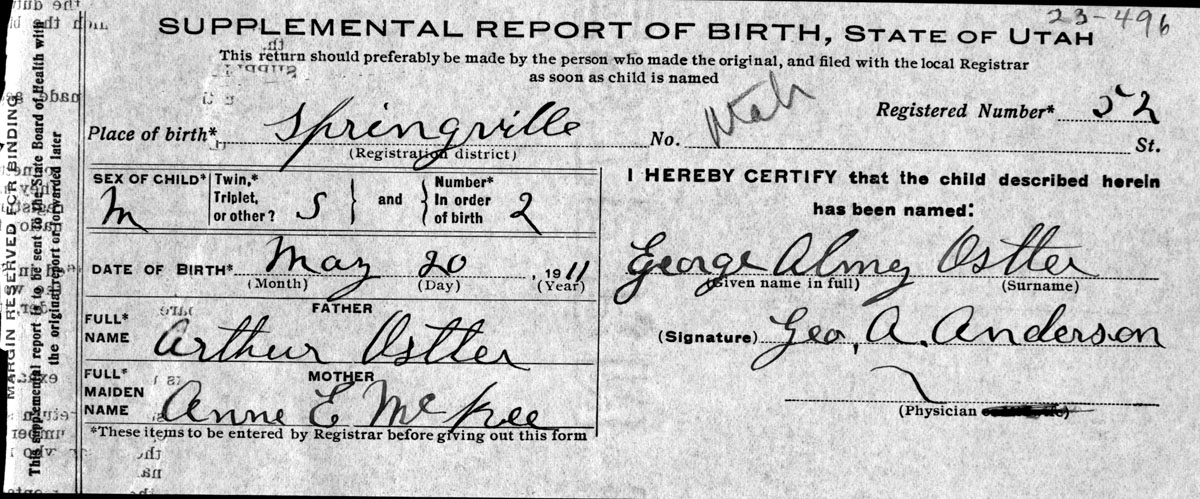 23-496
SUPPLEMENTAL REPORT OF BIRTH, STATE OF UTAH
This return should preferably be made by the person who made the original, and filed with the local Registrar
as soon as child is named
Registered Number* 52
Place of birth* Springville No. Utah St.
(Registration district)
SEX OF CHILD* M
Twin,* Triplet, or other? S } and { Number* In order of birth 2
DATE OF BIRTH* May 20, 1911
(Month) (Day) (Year)
FATHER
FULL* NAME Arthur Ostler
MOTHER
FULL* MAIDEN NAME Anne E McKee
*These items to be entered by Registrar before giving out this form
I HEREBY CERTIFY that the child described herein
has been named:
George Almey Ostler
(Given name in full) (Surname)
(Signature) Geo. A. Anderson
(Physician
MARGIN RESERVED FOR BINDING
This supplemental report is to be sent to the State Board of Health with
the original report or forwarded later